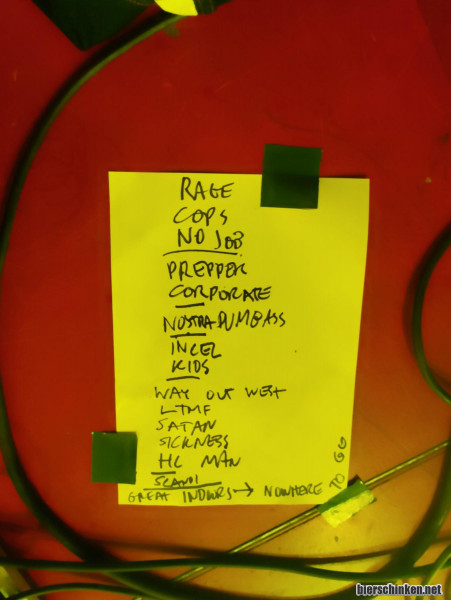 RAGE
COPS
NO JOB
PREPPER
CORPORATE
NOSTRADUMBASS
INCEL
KIDS
WAY OUT WEST
LTMF
SATAN
SICKNESS
HC MAN
SCANDI
GREAT INDOORS → NOWHERE TO GO
bierschinken.net